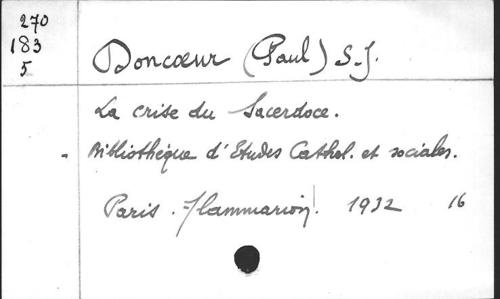 270
183
5
Doncœur (Paul) S.J.
La crise du Sacerdoce.
- Bibliothèque d'Etudes Cathol. et sociales.
Paris. Flammarion. 1932 16